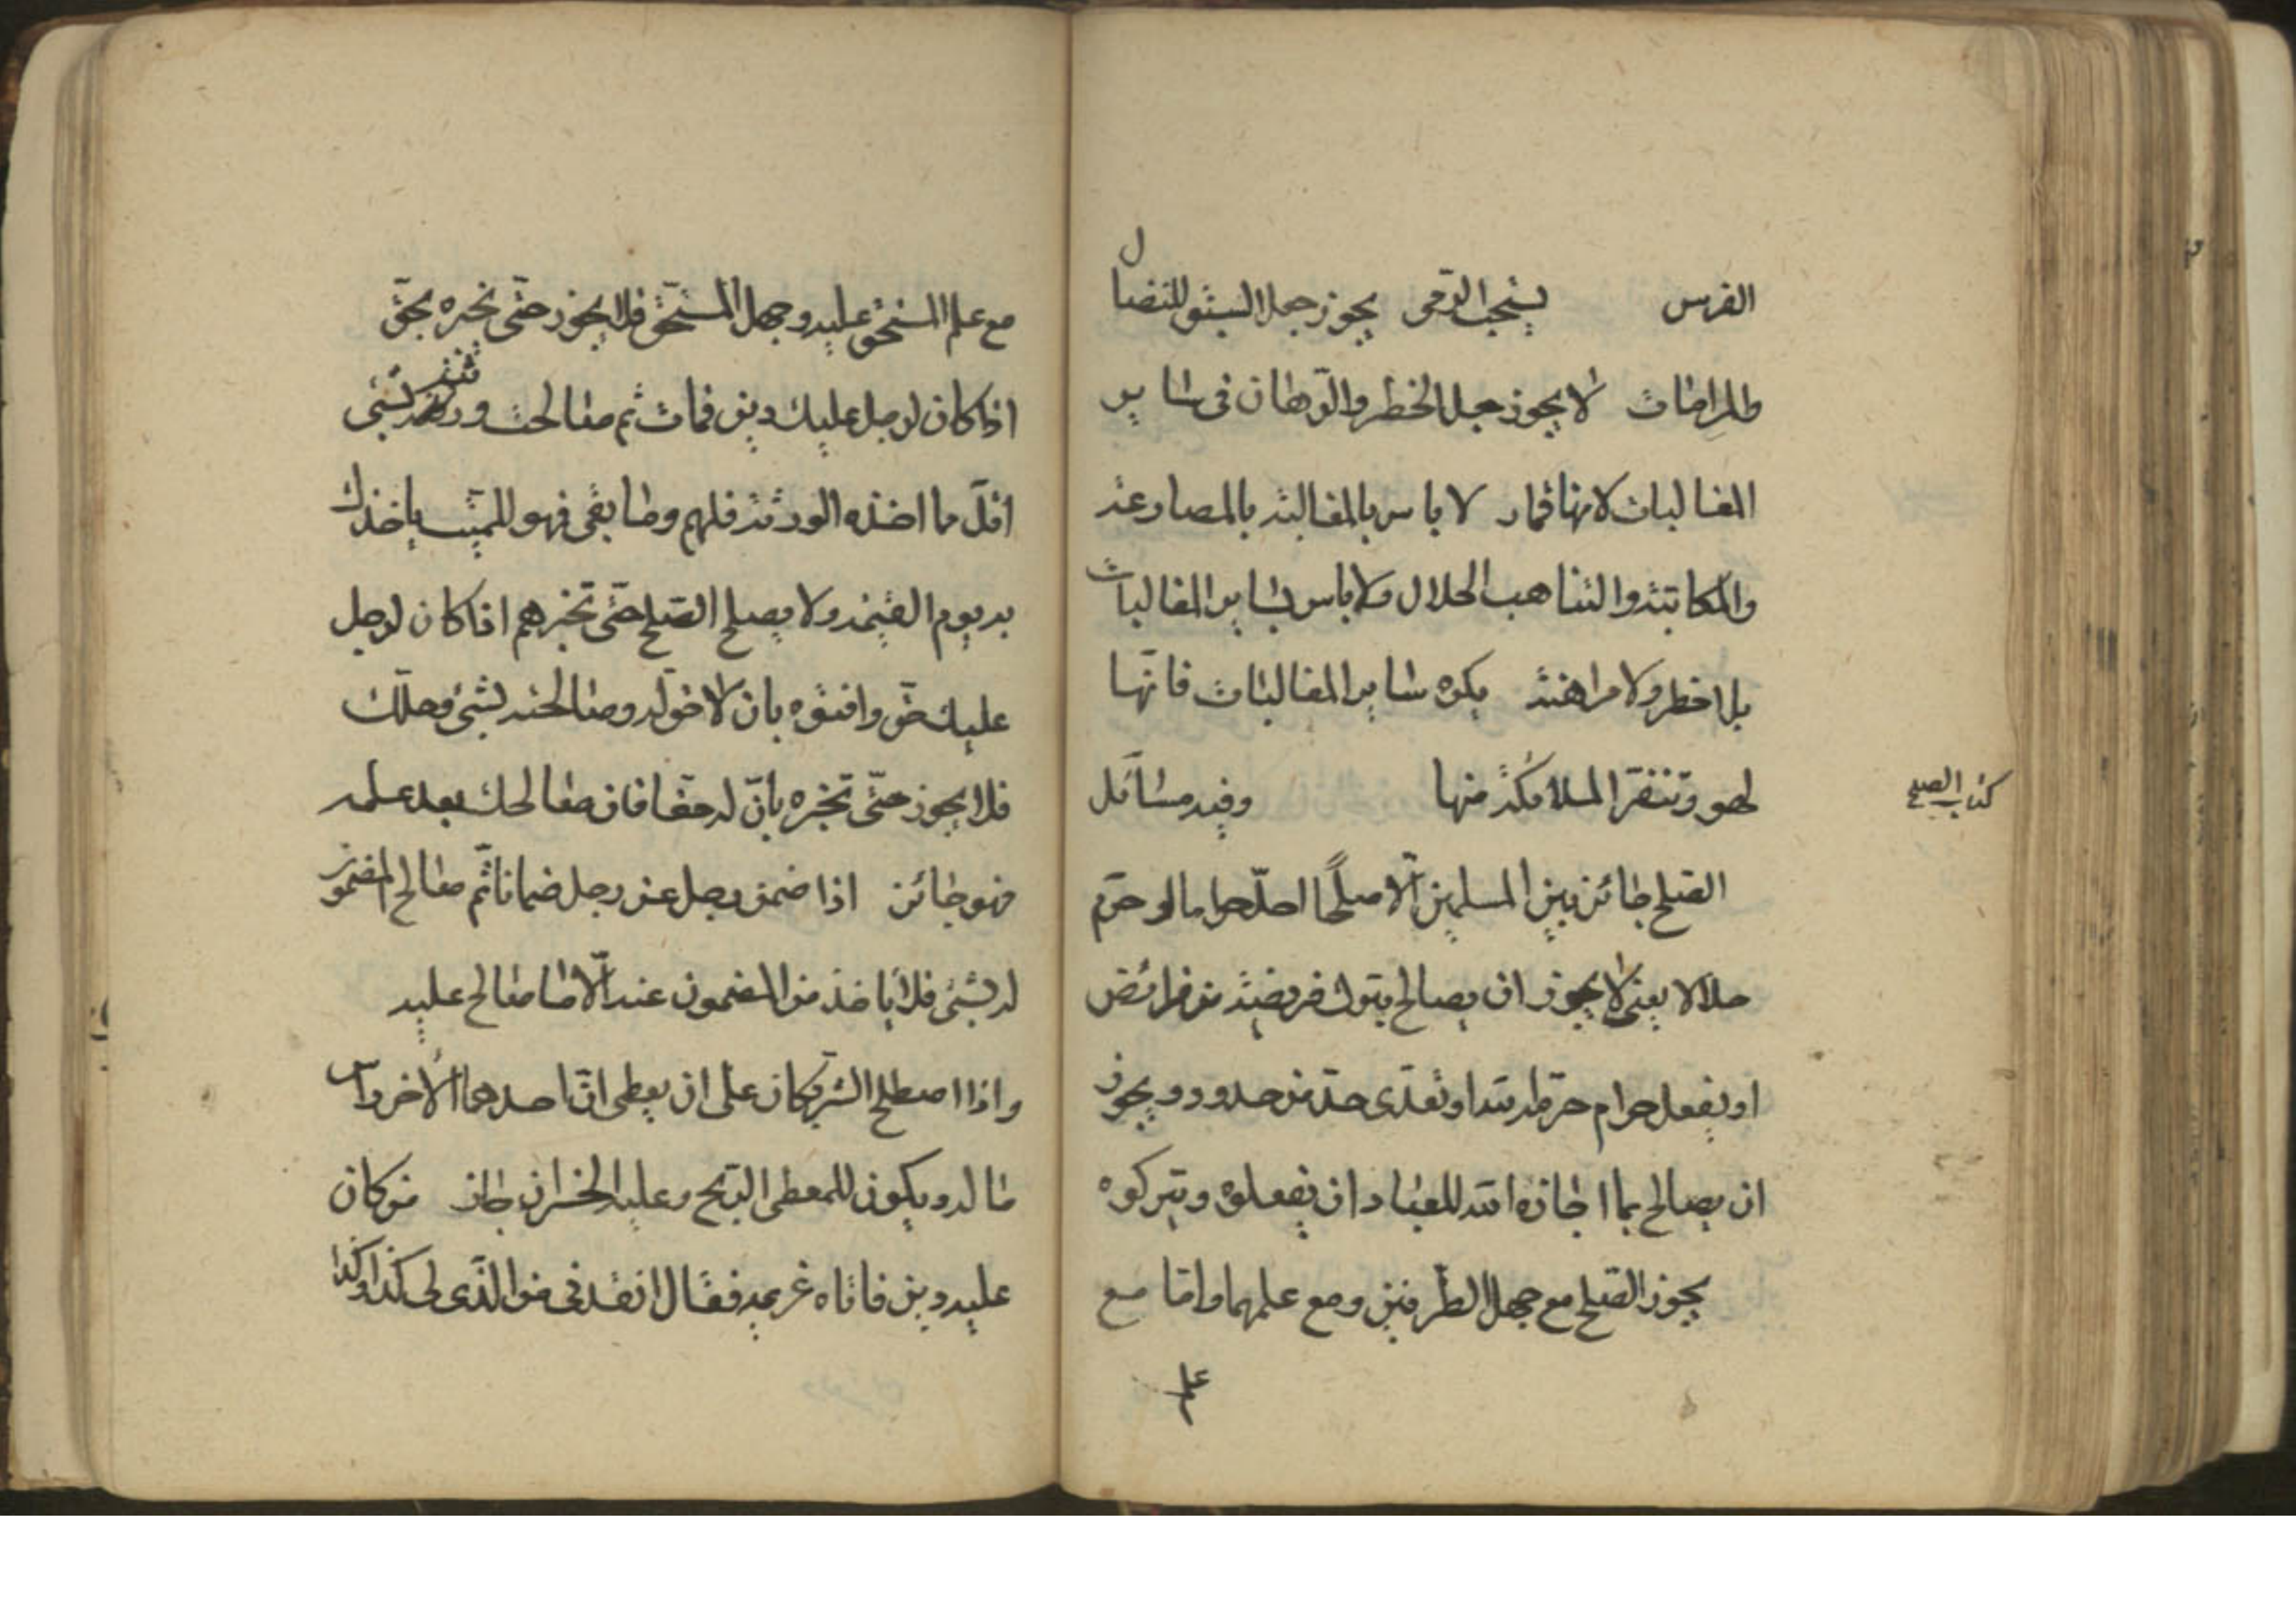 الفرس يستحب الرمى يجوز جعل السبق للنضال
والمراماة لا يجوز جعل الخطر والرهان فى ساير
المغالبات لانها قمار لا باس بالمغالبة بالمصارعة
والمكاتبة والتناهب الحلال ولا باس بساير المغالبات
بلا خطر ولا مراهنة يكره ساير المغالبات فانّها
لهو وتنفر الملائكة منها وفيه مسائل
كتاب الصلح
الصّلح جائز بين المسلمين الّا صلحًا احلّ حراما او حرّم
حلالا يعنى لا يجوز ان يصالح بترك فريضة من فرائض
او يفعل حرام حرّمه الله او تعدّى حدّ من حدود ويجوز
ان يصالح بما اجازه الله للعباد ان يفعلوه ويتركوه
يجوز الصّلح مع جهل الطّرفين ومع علمهما وامّا مع
علم
مع علم المستحق عليه وجهل المستحّق فلا يجوز حتّى تخبره بحقّ
اذا كان لرجل عليك دين فمات ثم صالحت ورثته بشىء
اقلّ ما اخذه الورثة فلهم وما بقى فهو للميّت ياخذك
به يوم القيمة ولا يصلح الصّلح حتّى تخبرهم اذا كان لرجل
عليك حقّ وافتوه بان لا حقّ له وصالحته بشىء وحلّلك
فلا يجوز حتّى تخبره بانّ له حقا فان صالحك بعد علمه
فهو جائز اذا ضمن رجل عن رجل ضمانا ثّم صالح المضمون
له بشىء فلا ياخذ من المضمون عنه الّا ما صالح عليه
واذا اصطلح الشّريكان على ان يعطى احدهما الآخر راس
ماله ويكون للمعطى الرّبح وعليه الخسران جاز من كان
عليه دين فاتاه غريمه فقال انقدنى من الذّى لى كذا وكذا